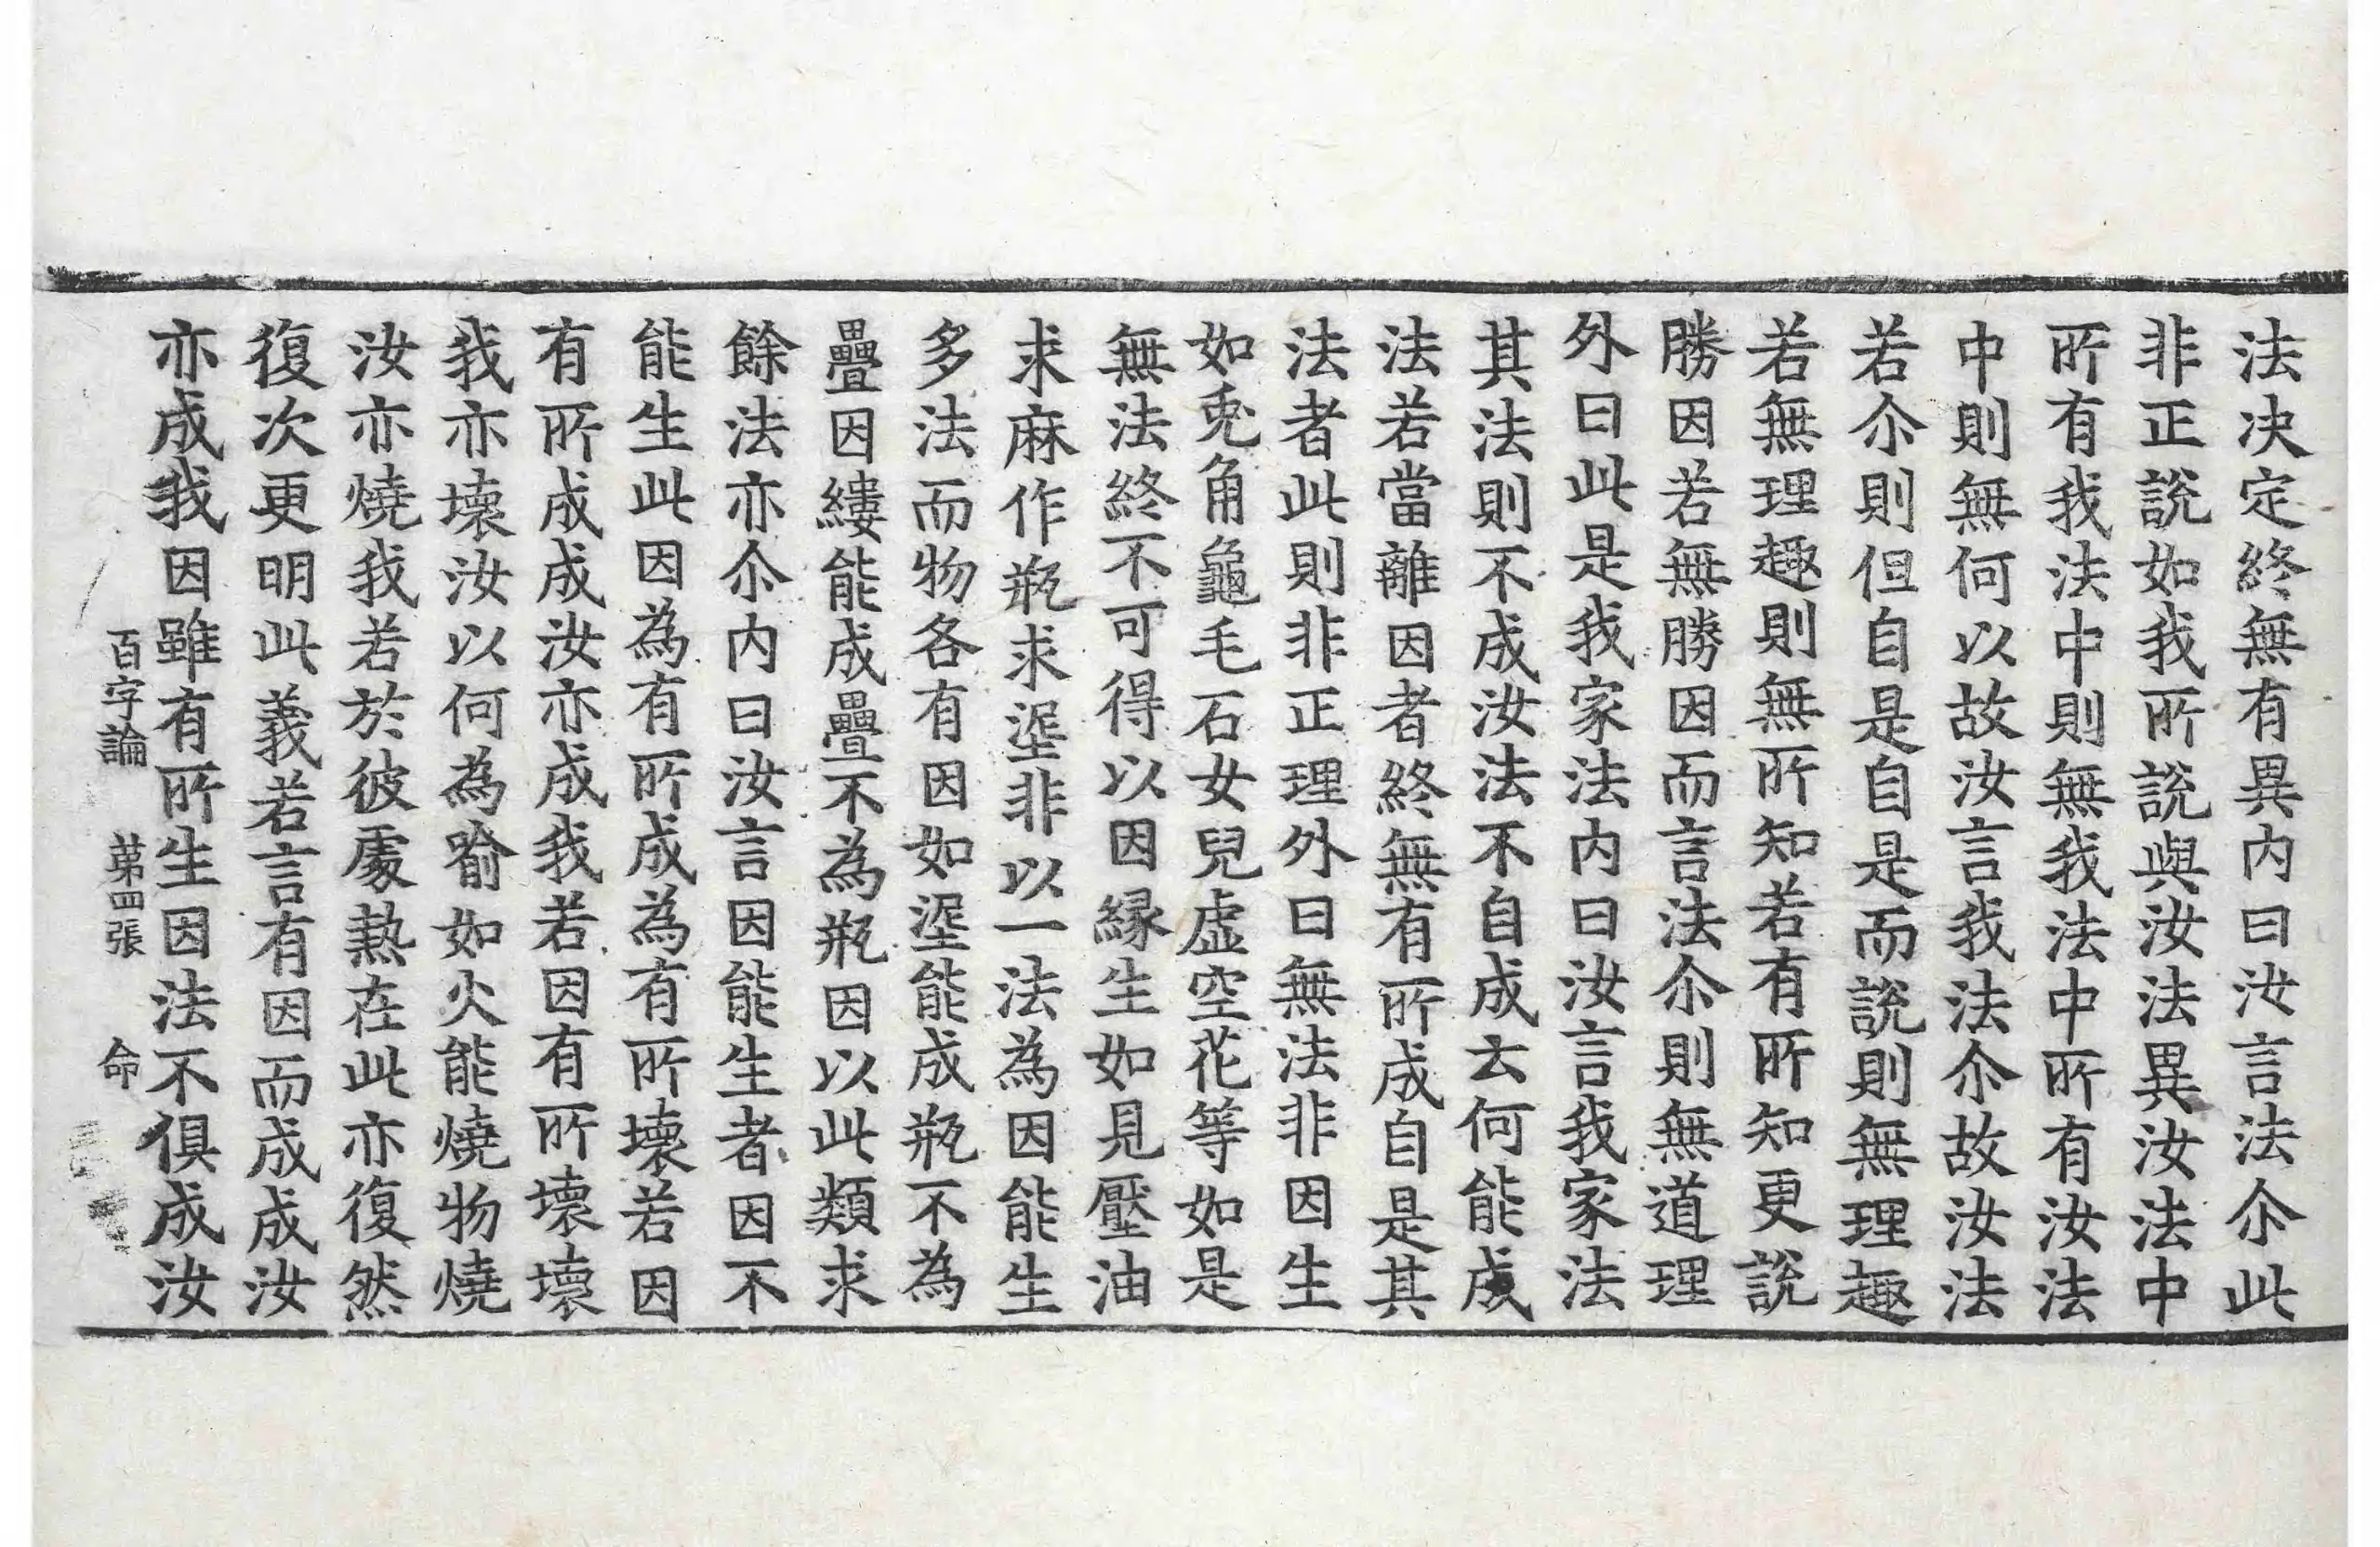 法决定終無有異内曰汝言法尒此
非正說如我所說與汝法異汝法中
所有我法中則無我法中所有汝法
中則無何以故汝言我法尒故汝法
若尒則但自是自是而說則無理趣
若無理趣則無所知若有所知更說
勝因若無勝因而言法尒則無道理
外曰此是我家法内曰汝言我家法
其法則不成汝法不自成云何能成
法若當離因者終無有所成自是其
法者此則非正理外曰無法非因生
如兎角龜毛石女兒虛空花等如是
無法終不可得以因縁生如見壓油
求麻作瓶求埿非以一法為因能生
多法而物各有因如埿能成瓶不為
疊因縷能成疊不為瓶因以此類求
餘法亦尒内曰汝言因能生者因不
能生此因為有所成為有所壞若因
有所成成汝亦成我若因有所壞壞
我亦壞汝以何為喻如火能燒物燒
汝亦燒我若於彼處熱在此亦復然
復次更明此義若言有因而成成汝
亦成我因雖有所生因法不俱成汝
百字論 苐四張 命